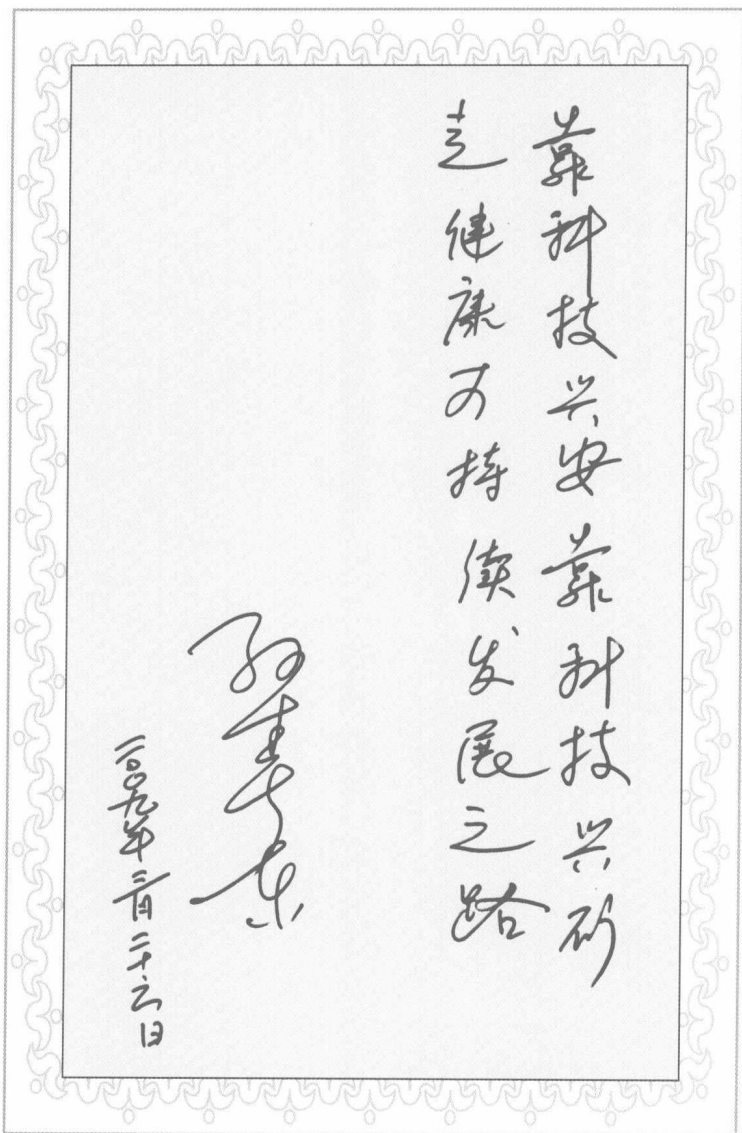 靠科技兴安靠科技兴矿
走健康可持续发展之路
孙春东
二〇〇九年二月二十六日